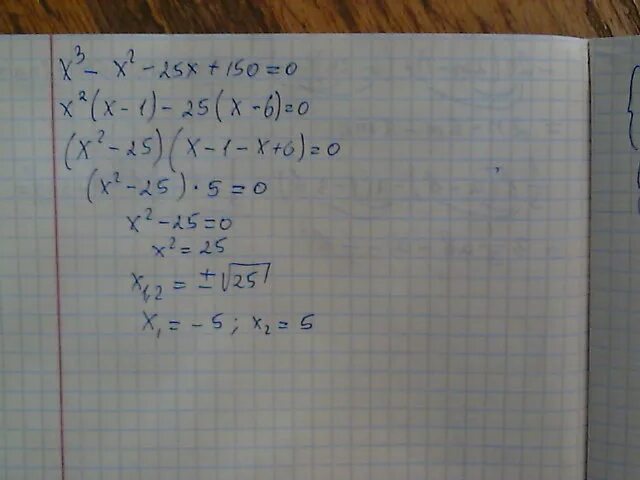 x³ - x² - 25x + 150 = 0
x²(x - 1) - 25(x - 6) = 0
(x² - 25)(x - 1 - x + 6) = 0
(x² - 25) · 5 = 0
x² - 25 = 0
x² = 25
x₁,₂ = ±√25
x₁ = - 5 ; x₂ = 5